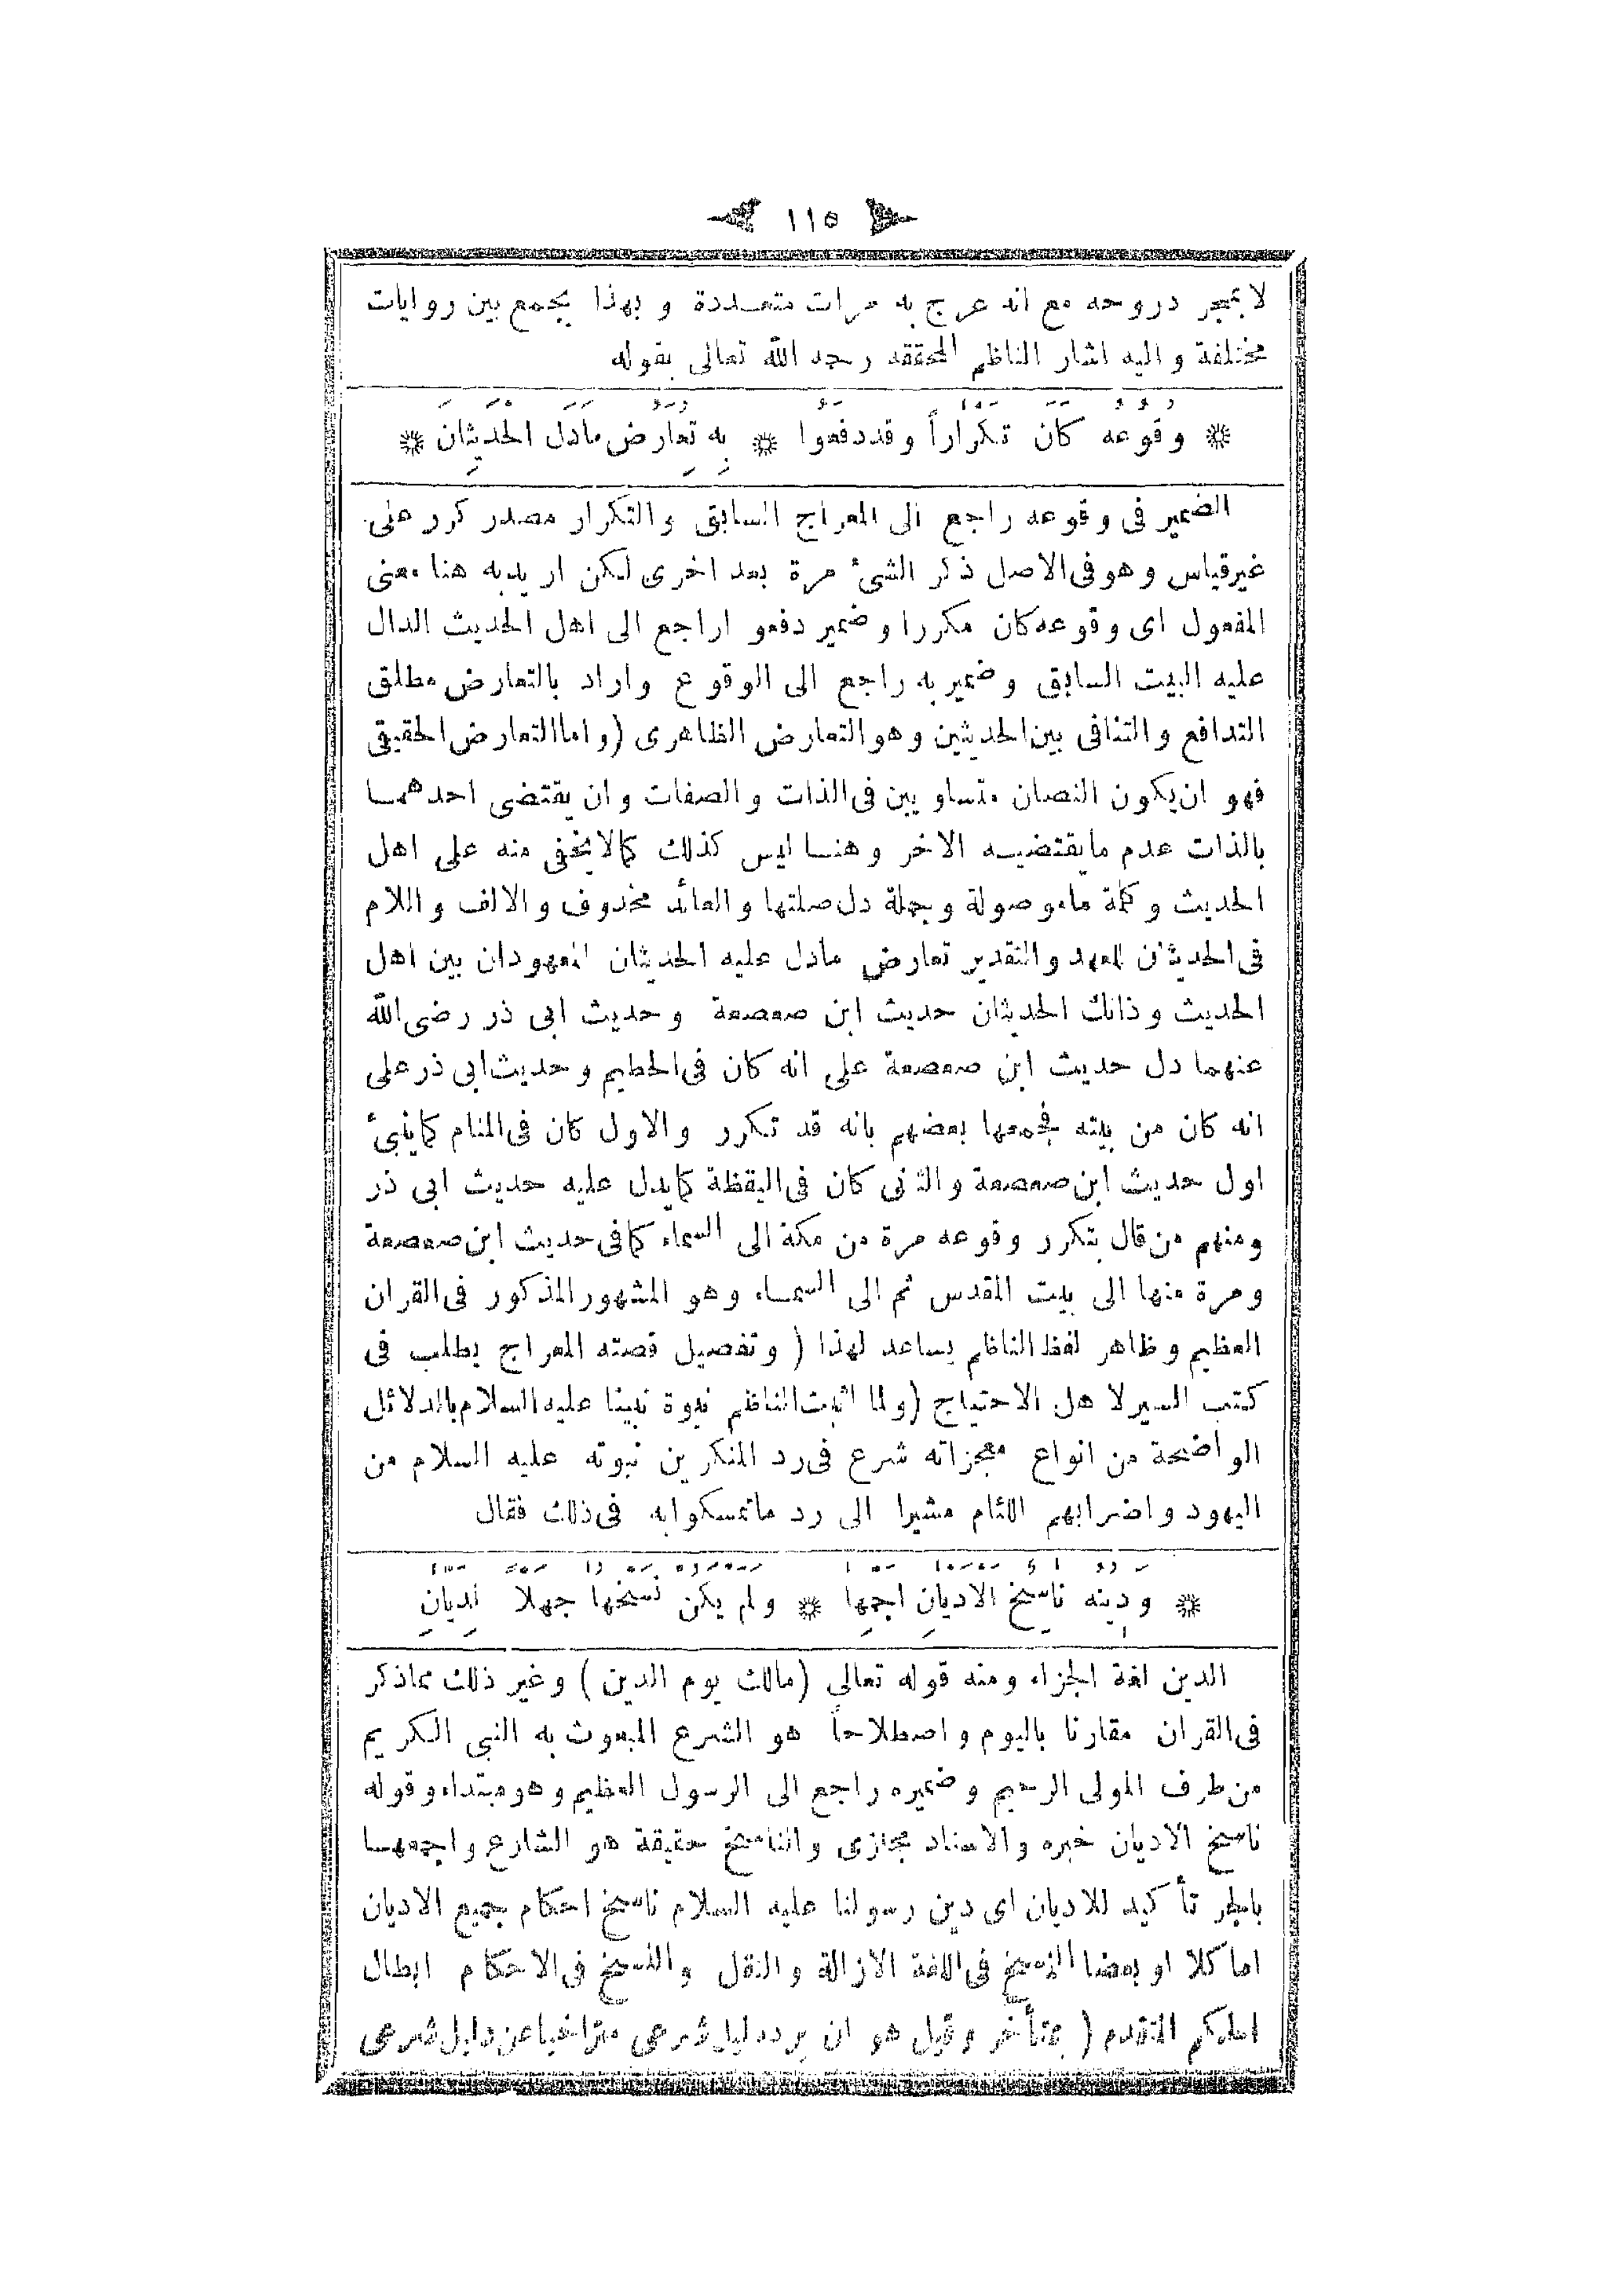 ١١٥
لا بمجر دروحه مع انه عرج به مرات متعددة و بهذا يجمع بين روايات
مختلفة واليه اشار الناظم المحققه رحمه الله تعالى بقوله
وقوعه كان تكراراً وقد دفعوا ۞ به تعارض مادل الحديثان
الضمير فى وقوعه راجع الى المعراج السابق والتكرار مصدر كرر على
غير قياس وهو فى الاصل ذكر الشئ مرة بعد اخرى لكن اريد به هنا معنى
المفعول اى وقوعه كان مكررا وضمير دفعوا راجع الى اهل الحديث الدال
عليه البيت السابق وضمير به راجع الى الوقوع واراد بالتعارض مطلق
التدافع والتنافى بين الحديثين وهو التعارض الظاهرى (واما التعارض الحقيقى
فهو ان يكون النصان متساويين فى الذات والصفات وان يقتضى احدهما
بالذات عدم مايقتضيه الاخر وهنا ليس كذلك كمالايخفى منه على اهل
الحديث وكلمة ماموصولة وجملة دل صلتها والعائد محذوف والالف واللام
فى الحديثان للعهد والتقدير تعارض مادل عليه الحديثان المعهودان بين اهل
الحديث وذانك الحديثان حديث ابن صعصعة وحديث ابى ذر رضى الله
عنهما دل حديث ابن صعصعة على انه كان فى الحطيم وحديث ابى ذر على
انه كان من بيته فجمعها بعضهم بانه قد تكرر والاول كان فى المنام كماينبئ
اول حديث ابن صعصعة والثانى كان فى اليقظة كمايدل عليه حديث ابى ذر
ومنهم من قال بتكرر وقوعه مرة من مكة الى السماء كمافى حديث ابن صعصعة
ومرة منها الى بيت المقدس ثم الى السماء وهو المشهور المذكور فى القران
العظيم وظاهر لفظ الناظم يساعد لهذا (وتفصيل قصته المعراج يطلب فى
كتب السير لاهل الاحتياج (ولما اثبت الناظم نبوة نبينا عليه السلام بالدلائل
الواضحة من انواع معجزاته شرع فى رد المنكرين نبوته عليه السلام من
اليهود واضرابهم اللئام مشيرا الى رد ماتمسكوابه فى ذلك فقال
ودينه ناسخ الاديان اجمعها ۞ ولم يكن نسخها جهلا لديان
الدين لغة الجزاء ومنه قوله تعالى (مالك يوم الدين) وغير ذلك مماذكر
فى القران مقارنا باليوم واصطلاحاً هو الشرع المبعوث به النبى الكريم
من طرف المولى الرحيم وضميره راجع الى الرسول العظيم وهو مبتداء وقوله
ناسخ الاديان خبره والاسناد مجازى والناسخ حقيقة هو الشارع واجمعها
بالجر تأكيد للاديان اى دين رسولنا عليه السلام ناسخ احكام جميع الاديان
اما كلا او بعضا النسخ فى اللغة الازالة والنقل والنسخ فى الاحكام ابطال
الحكم المتقدم (بمتأخر وقيل هو ان يرد دليل شرعى متراخيا عن دليل شرعى